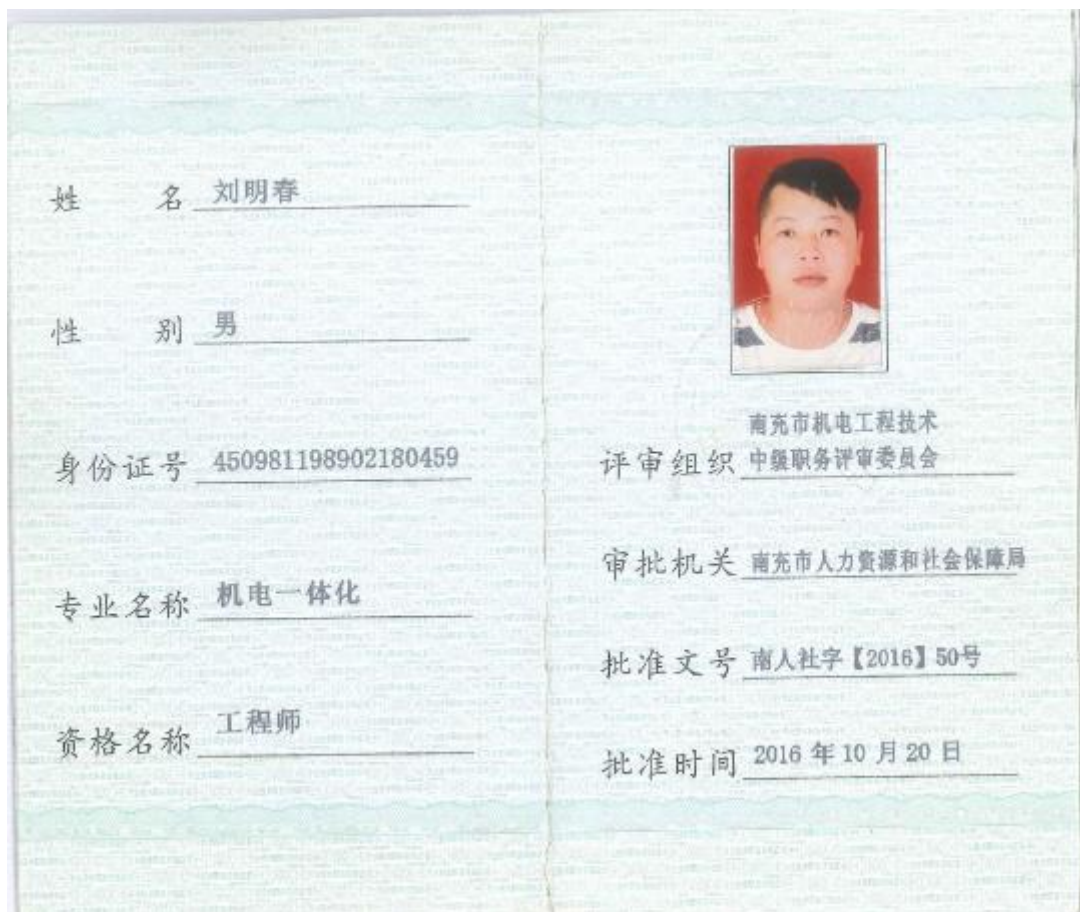 姓 名 刘明春
性 别 男
身份证号 450981198902180459
专业名称 机电一体化
资格名称 工程师
南充市机电工程技术
评审组织 中级职务评审委员会
审批机关 南充市人力资源和社会保障局
批准文号 南人社字【2016】50号
批准时间 2016 年 10 月 20 日